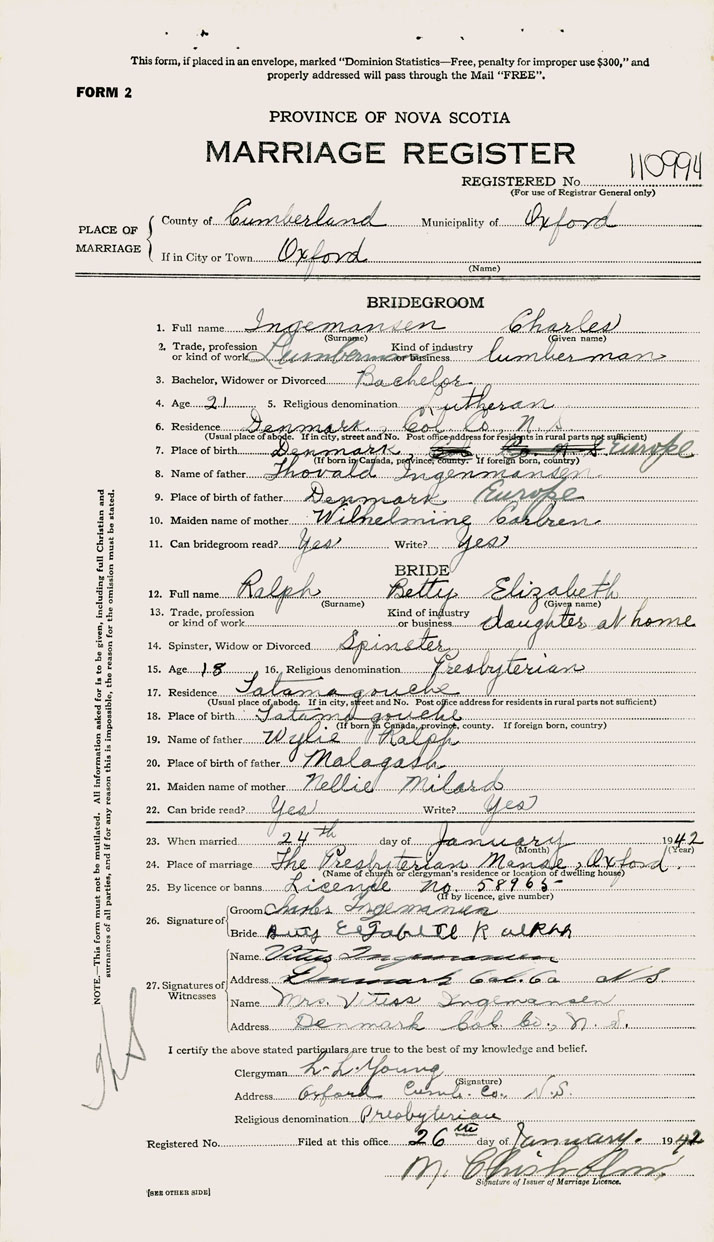 This form, if placed in an envelope, marked "Dominion Statistics—Free, penalty for improper use $300," and
properly addressed will pass through the Mail "FREE".
FORM 2
PROVINCE OF NOVA SCOTIA
MARRIAGE REGISTER
110994
REGISTERED No.
(For use of Registrar General only)
PLACE OF MARRIAGE
County of Cumberland Municipality of Oxford
If in City or Town Oxford
(Name)
BRIDEGROOM
1. Full name Ingemansen Charles
(Surname) (Given name)
2. Trade, profession or kind of work Lumberman Kind of industry or business lumberman
3. Bachelor, Widower or Divorced Bachelor
4. Age 21 5. Religious denomination Lutheran
6. Residence Denmark, Col. Co., N.S.
(Usual place of abode. If in city, street and No. Post office address for residents in rural parts not sufficient)
7. Place of birth Denmark, Europe
(If born in Canada, province, county. If foreign born, country)
8. Name of father Thovald Ingenmansen
9. Place of birth of father Denmark Europe
10. Maiden name of mother Wilhelmine
11. Can bridegroom read? Yes Write? Yes
BRIDE
12. Full name Ralph Betty Elizabeth
(Surname) (Given name)
13. Trade, profession or kind of work Kind of industry or business daughter at home
14. Spinster, Widow or Divorced Spinster
15. Age 18 16. Religious denomination Presbyterian
17. Residence Tatamagouche
(Usual place of abode. If in city, street and No. Post office address for residents in rural parts not sufficient)
18. Place of birth Tatamagouche
(If born in Canada, province, county. If foreign born, country)
19. Name of father Wylie Ralph
20. Place of birth of father Malagash
21. Maiden name of mother Nellie Milard
22. Can bride read? Yes Write? Yes
23. When married 24th day of January 1942
(Month) (Year)
24. Place of marriage The Presbyterian Manse, Oxford.
(Name of church or clergyman's residence or location of dwelling house)
25. By licence or banns Licence No. 58965
(If by licence, give number)
26. Signature of
Groom Charles Ingemansen
Bride Betty Elizabeth Ralph
27. Signatures of Witnesses
Name Vitus Ingemansen
Address Denmark Col. Co. N.S.
Name Mrs. Vitus Ingemansen
Address Denmark Col. Co., N.S.
I certify the above stated particulars are true to the best of my knowledge and belief.
Clergyman L. L. Young
(Signature)
Address Oxford Cumb. Co., N.S.
Religious denomination Presbyterian
Registered No. Filed at this office 26th day of January. 1942
M. Chisholm
Signature of Issuer of Marriage Licence.
[SEE OTHER SIDE]
NOTE.—This form must not be mutilated. All information asked for is to be given, including full Christian and
surnames of all parties, and if for any reason this is impossible, the reason for the omission must be stated.